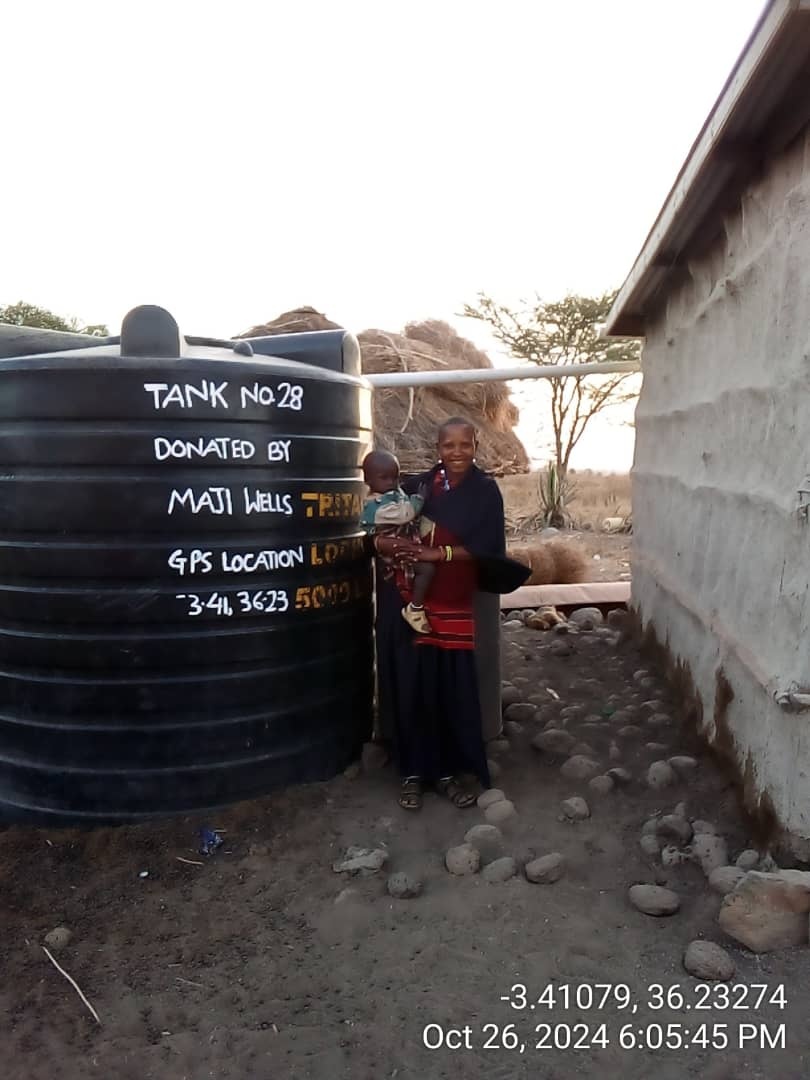 TANK NO.28
DONATED BY
MAJI WELLS
GPS LOCATION
-3.41, 36.23
-3.41079, 36.23274
Oct 26, 2024 6:05:45 PM